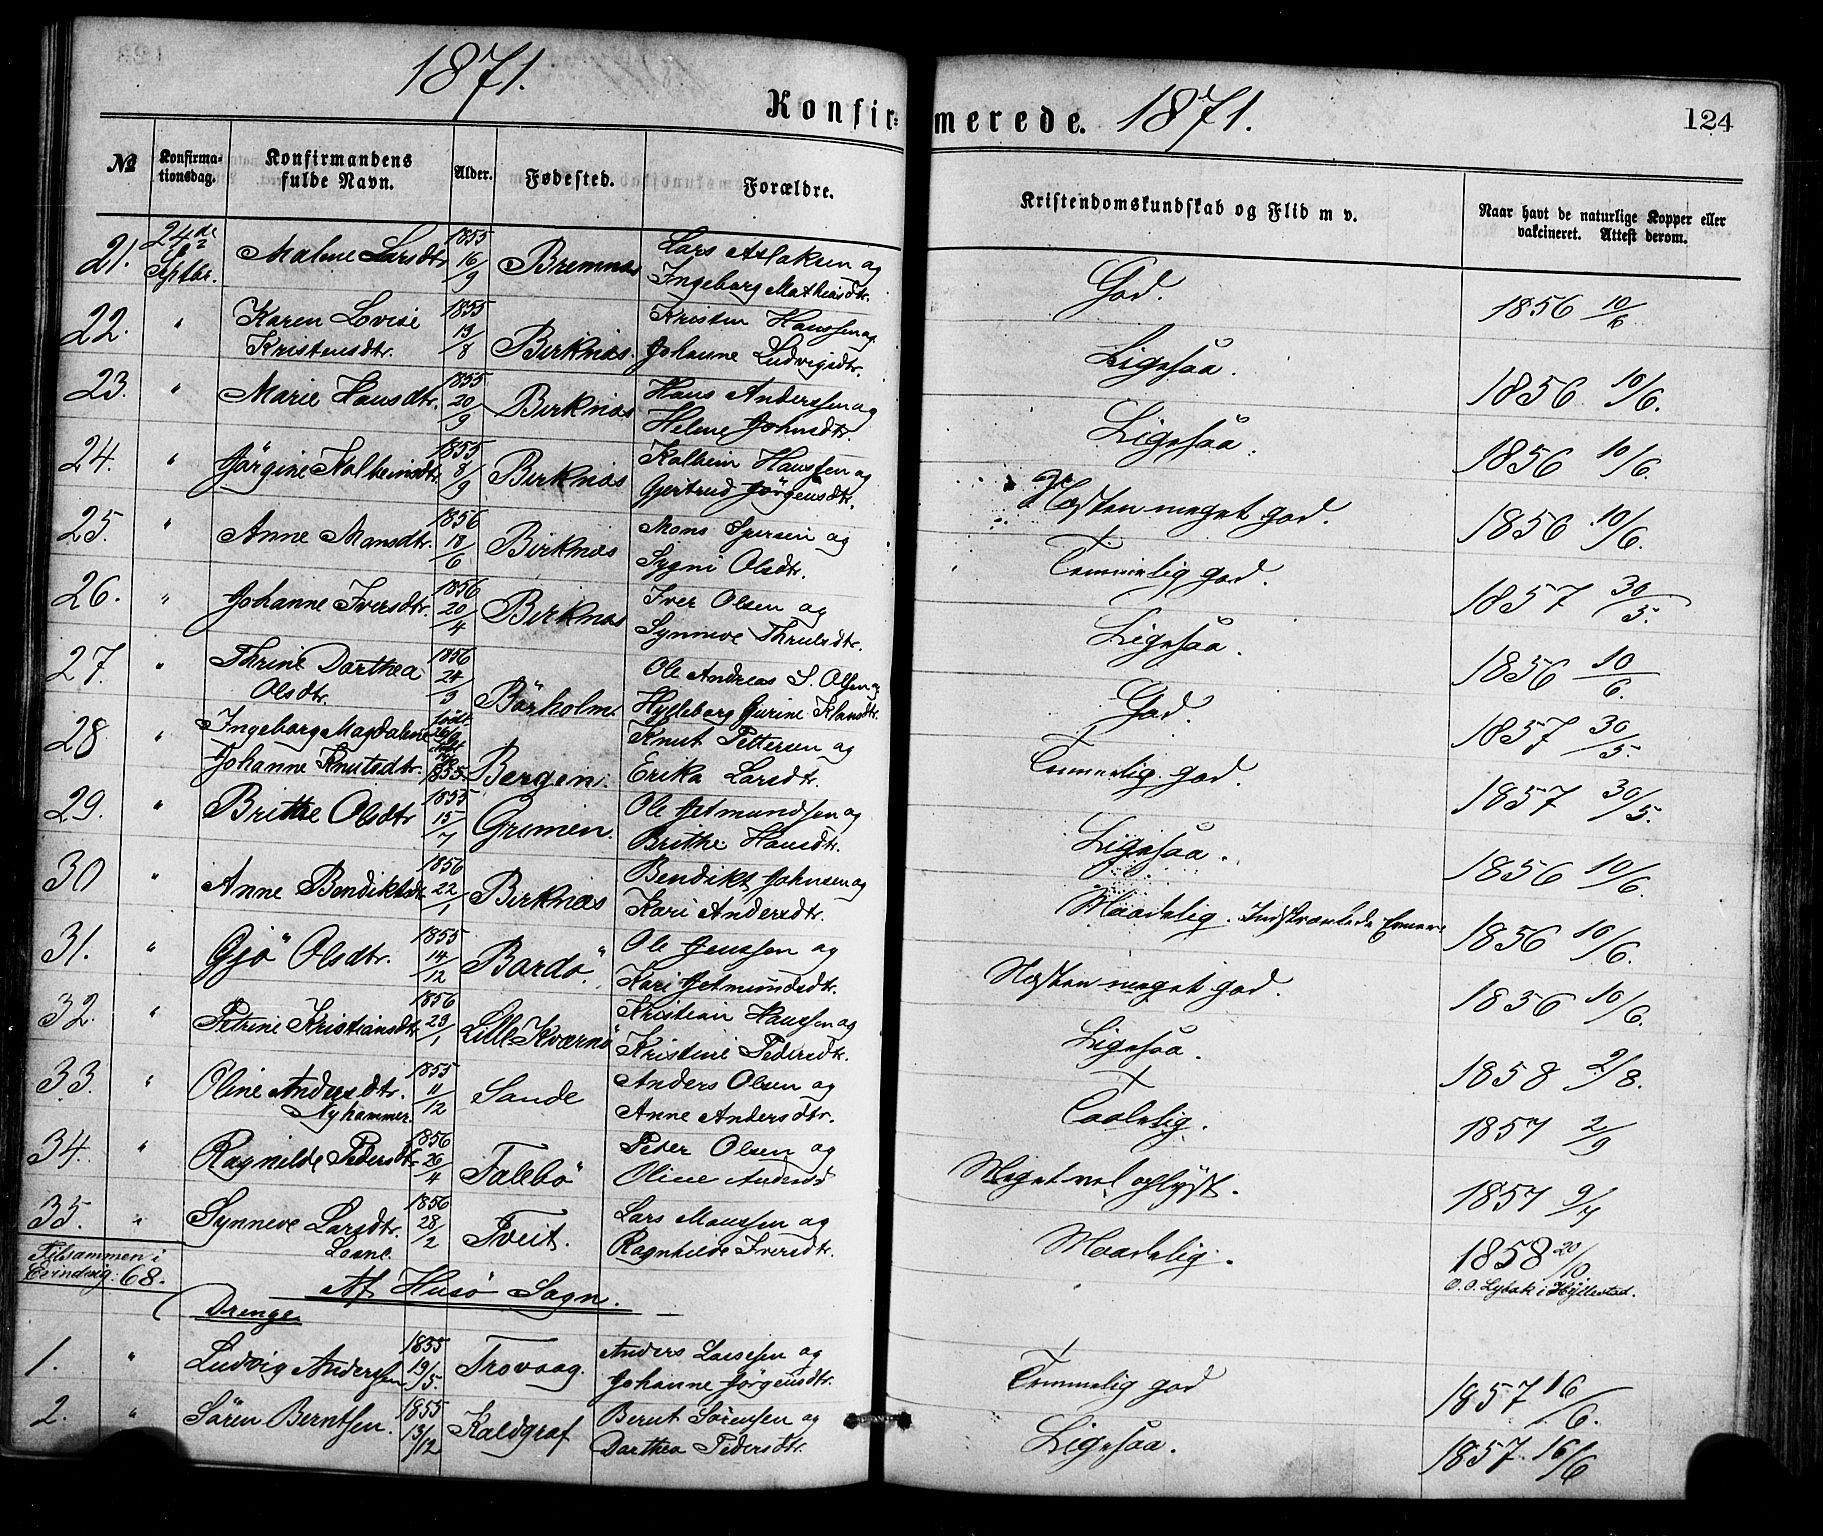 1871.
Konfirmerede. 1871.
124
№
Konfirmationsdag.
Konfirmandens fulde Navn.
Alder.
Fødested.
Forældre.
Kristendomskundskab og Flid m v.
Naar havt de naturlige Kopper eller vakcineret. Attest derom.
21. 24de Septbr. Malene Larsdtr. 1855 16/9 Bremnæs Lars Aslaksen og Ingeborg Mathiasdtr. God. 1856 10/6.
22. " Karen Lovise Kristensdtr. 1855 13/8 Birknæs. Kristen Hanssen og Johanne Ludvigsdtr. Ligesaa. 1856 10/6.
23. " Marie Hansdtr. 1855 20/9 Birknæs Hans Anderssen og Helene Johnsdtr. Ligesaa. 1856 10/6.
24. " Jörgine Kolbeinsdtr 1855 8/9 Birknæs Kolbein Hanssen og Gjertrud Jörgensdtr. Næsten meget god. 1856 10/6.
25. " Anne Monsdtr. 1856 18/6 Birknæs Mons Iversen og Sygni Olsdtr. Temmelig god. 1857 30/5.
26. " Johanne Iversdtr. 1856 20/4 Birknæs Iver Olsen og Synneve Thrulsdtr. Ligesaa. 1856 10/6.
27. " Thrine Dorthea Olsdtr. 1856 24/3 Börholm. Ole Andreas S. Olsen og Hylleborg Gurine Klausdtr. God. 1857 30/5.
28 " Ingeborg Magdalene Johanne Knutsdtr. født 1855. Bergen. Knut Pettersen og Erika Larsdtr. Temmelig god. 1857 30/5.
29. " Brithe Olsdtr 1855 15/7 Grimen. Ole Jetmundsen og Brithe Hansdtr. Ligesaa. 1856 10/6.
30 " Anne Bendiktsdtr 1856 22/1 Birknæs Bendikt Johnsen og Kari Andersdtr. Maadelig. Indskrænkede Evner. 1856 10/6.
31. " Gjö Olsdtr. 1855 14/12 Bardö. Ole Jenssen og Kari Jetmundsdtr. Næsten meget god. 1856 10/6.
32. " Petrine Kristiansdtr. 1856 29/1 Lille Kværnö Kristian Hanssen og Kristine Pedersdtr. Ligesaa. 1858 2/8.
33. " Oline Andersdtr. Nyhammer. 1855 11/12 Sande Anders Olsen og Anne Andersdtr. Taalelig. 1857 2/9
34. " Ragnilde Pedersdtr. 1856 26/4 Falebö Peder Olsen og Oline Andersd Meget vel oplyst. 1857 9/7
35. " Synneve Larsdtr. 1856 28/2 Tveit. Lars Monssen og Ragnhilde Iversdtr. Maadelig. 1858 20/10
O. O. Lybæk i Hyllestad.
Tilsammen i
Evindvig: 68.
Af Husö Sogn.
Drenge
1. " Ludvig Anderssen 1855 19/5. Trovaag. Anders Larssen og Johanne Jörgensdtr. Temmelig god 1857 16/6.
2. " Sören Berntsen. 1855 13/12 Kaldgraf Bernt Sörensen og Dorthea Pedersdtr. Ligesaa. 1857 16/6